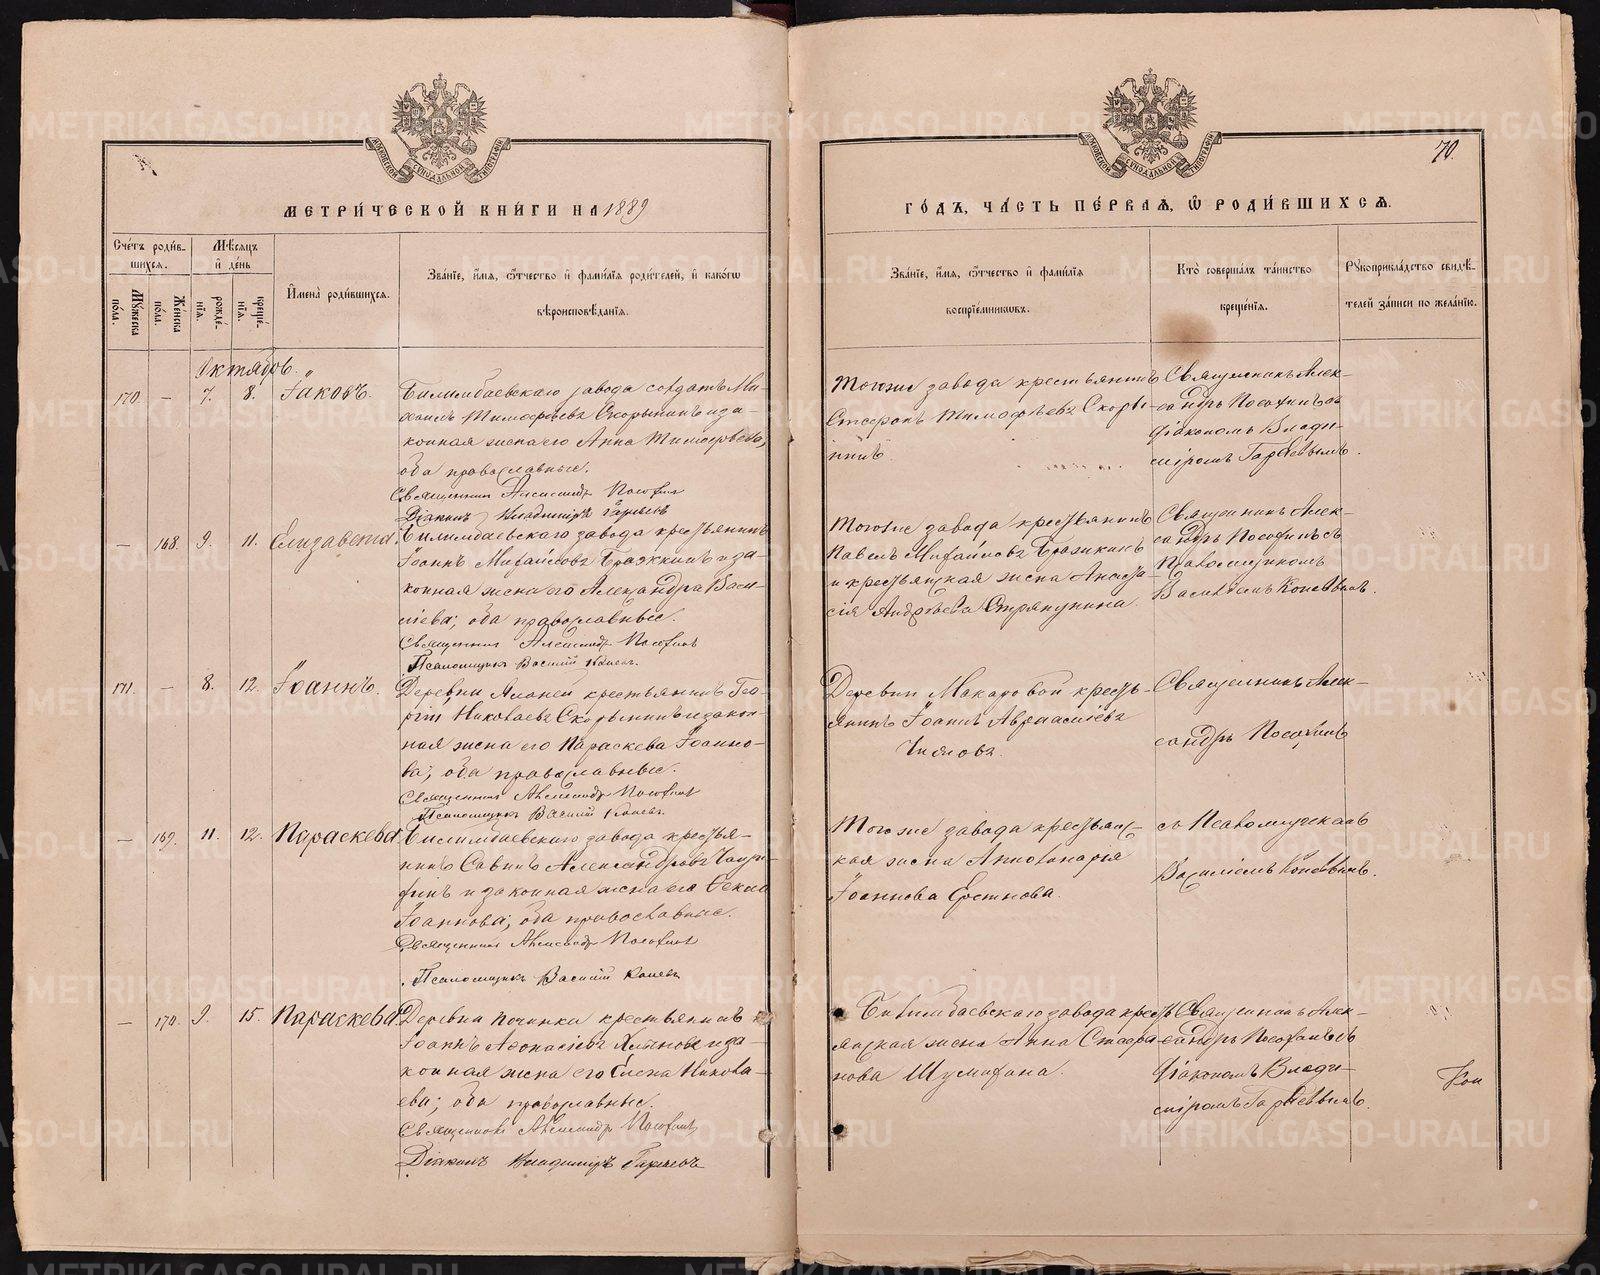 МОСКОВСКОЙ СѴНОДАЛЬНОЙ ТИПОГРАФІИ
МЕТРИ́ЧЕСКОЙ КНИ́ГИ НА 1889
Сче́тъ роди́в-
шихся.
Му́жеска
по́ла.
Же́нска
по́ла.
Мѣ́сяцъ
и҆ де́нь
рожде́-
нїя.
креще́-
нїя.
И҆мена̀ роди́вшихся.
Зва́нїе, и҆́мя, ѻ҆́тчество и҆ фами́лїя роди́телей, и҆ како́гѡ
вѣроисповѣ́данїя.
Октябрь.
170 — 7. 8. Іаковъ.
Билимбаевскаго завода солдатъ Ми-
хаилъ Тимофеевъ Скорынинъ и за-
конная жена его Анна Тимофеева,
оба православные.
Священникъ Александръ
Діаконъ Владимiръ
— 168. 9. 11. Елизавета.
Билимбаевскаго завода крестьянинъ
Іоаннъ Михайловъ Бражкинъ и за-
конная жена его Александра Васи-
ліева; оба православные.
Священникъ Александръ
Псаломщикъ Василій
171. — 8. 12. Іоаннъ.
Деревни крестьянинъ Гео-
ргій Николаевъ Скорынинъ и закон-
ная жена его Параскева Іоанно-
ва; оба православные.
Священникъ Александръ
Псаломщикъ Василій
— 169. 11. 12. Параскева.
Билимбаевскаго завода крестья-
нинъ Савинъ Александровъ
и законная жена его Фекла
Іоаннова; оба православные.
Священникъ Александръ
Псаломщикъ Василій
— 170. 9. 15. Параскева.
Деревни Починка крестьянинъ
Іоаннъ Афонасіевъ и за-
конная жена его Елена Никола-
ева; оба православные.
Священникъ Александръ
Діаконъ Владиміръ
МОСКОВСКОЙ СѴНОДАЛЬНОЙ ТИПОГРАФІИ
70.
ГО́ДЪ, ЧА́СТЬ ПЕ́РВАЯ, Ѡ҆ РОДИ́ВШИХСЯ.
Зва́нїе, и҆́мя, ѻ҆́тчество и҆ фами́лїя
воспрїе́мникѡвъ.
Кто̀ соверша́лъ та́инство
креще́нїя.
Рꙋкоприкла́дство свидѣ́-
телей за́писи по жела́нїю.
Тогоже завода крестьянинъ
Стефанъ Тимофѣевъ Скоры-
нинъ.
Священникъ Алек-
сандръ съ
діакономъ Влади-
міромъ
Тогоже завода крестьянинъ
Павелъ Михайловъ Бражкинъ
и крестьянская жена Анаста-
сія Андреева Стряпунина.
Священникъ Алек-
сандръ съ
Псаломщикомъ
Василіемъ
Деревни Макаровой кресть-
янинъ Іоаннъ Афанасіевъ
Священникъ Алек-
сандръ
Тогоже завода крестьянс-
кая жена Апполинарія
Іоаннова
съ Псаломщикомъ
Василіемъ
Билимбаевскаго завода кресть-
янская жена Анна Стефа-
нова
Священникъ Алек-
сандръ съ
діакономъ Влади-
міромъ
Кон
METRIKI.GASO-URAL.RU